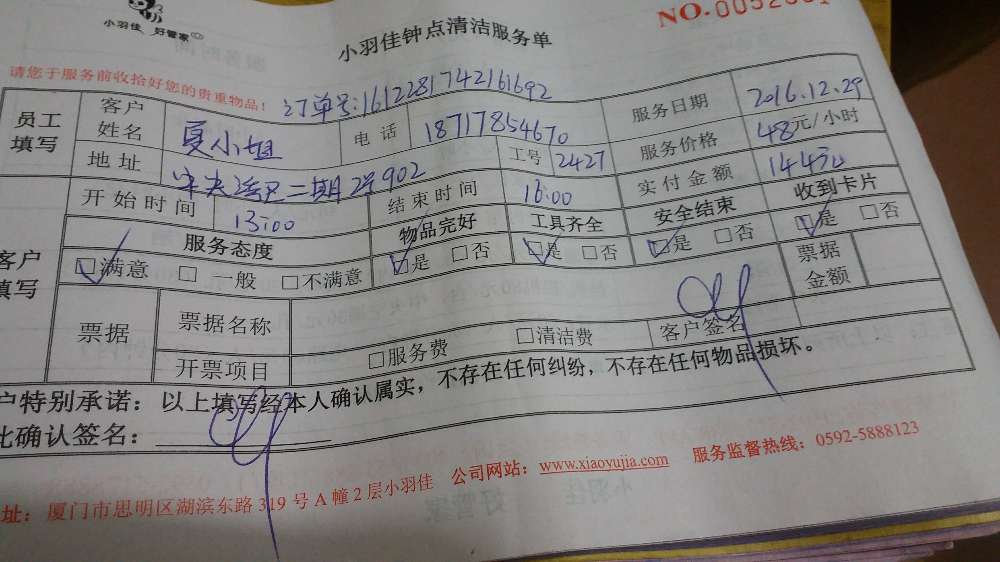 小羽佳 好管家
小羽佳钟点清洁服务单
请您于服务前收拾好您的贵重物品！
订单号:1612281742161692
员工填写 客户姓名 夏小姐 电话 18717854670 服务日期 2016.12.29
地址 二期2号902 工号 2427 服务价格 48元/小时
开始时间 13:00 结束时间 16:00 实付金额 144元
客户填写 服务态度 物品完好 工具齐全 安全结束 收到卡片
□满意 □一般 □不满意 □是 □否 □是 □否 □是 □否 □是 □否
票据 票据名称 客户签名 票据金额
开票项目 □服务费 □清洁费
户特别承诺：以上填写经本人确认属实，不存在任何纠纷，不存在任何物品损坏。
此确认签名：
址：厦门市思明区湖滨东路319号A幢2层小羽佳 公司网站：www.xiaoyujia.com 服务监督热线：0592-5888123